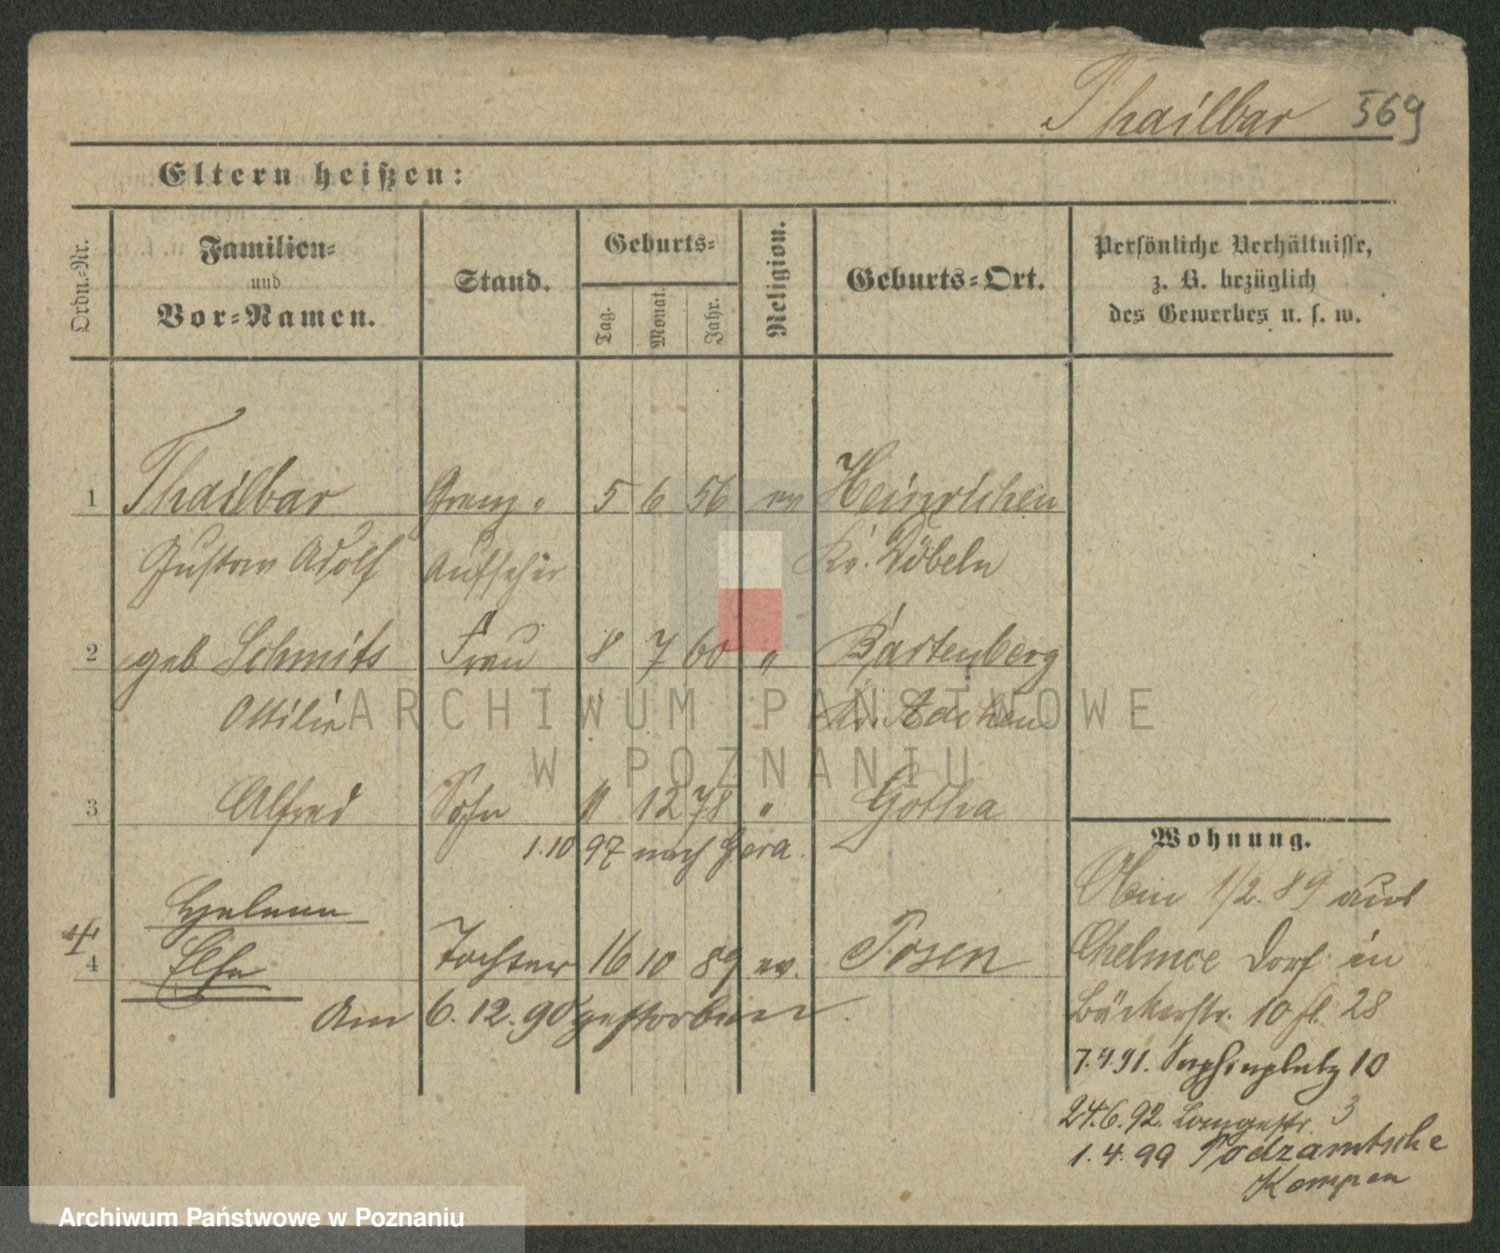 Thailbar 569
Eltern heißen:
Ordn.-Nr.
Familien-
und
Vor-Namen.
Stand.
Geburts-
Tag.
Monat.
Jahr.
Religion.
Geburts-Ort.
Persönliche Verhältnisse,
z. B. bezüglich
des Gewerbes u. s. w.
1 Thailbar Grenz- 5 6 56 ev Heinrichen
Gustav Adolf Aufseher Kr. Döbeln
2 geb Schmits Frau 8 7 60 " Bartenberg
Ottilie Kr. Aachen
ARCHIWUM PAŃSTWOWE
W POZNANIU
3 Alfred Sohn 11 12 78 " Gotha
1.10 97 nach Gera.
Helene
4 Else Tochter 16 10 89 ev. Posen
Am 6.12.90 gestorben.
Wohnung.
1/2.89 aus
Chelmce Dorf in
Bäckerstr. 10 fl. 28
7.4.91. Saphieplatz 10
24.6.92. Langestr. 3
1.4.99 Podzamtsche
Kempen
Archiwum Państwowe w Poznaniu